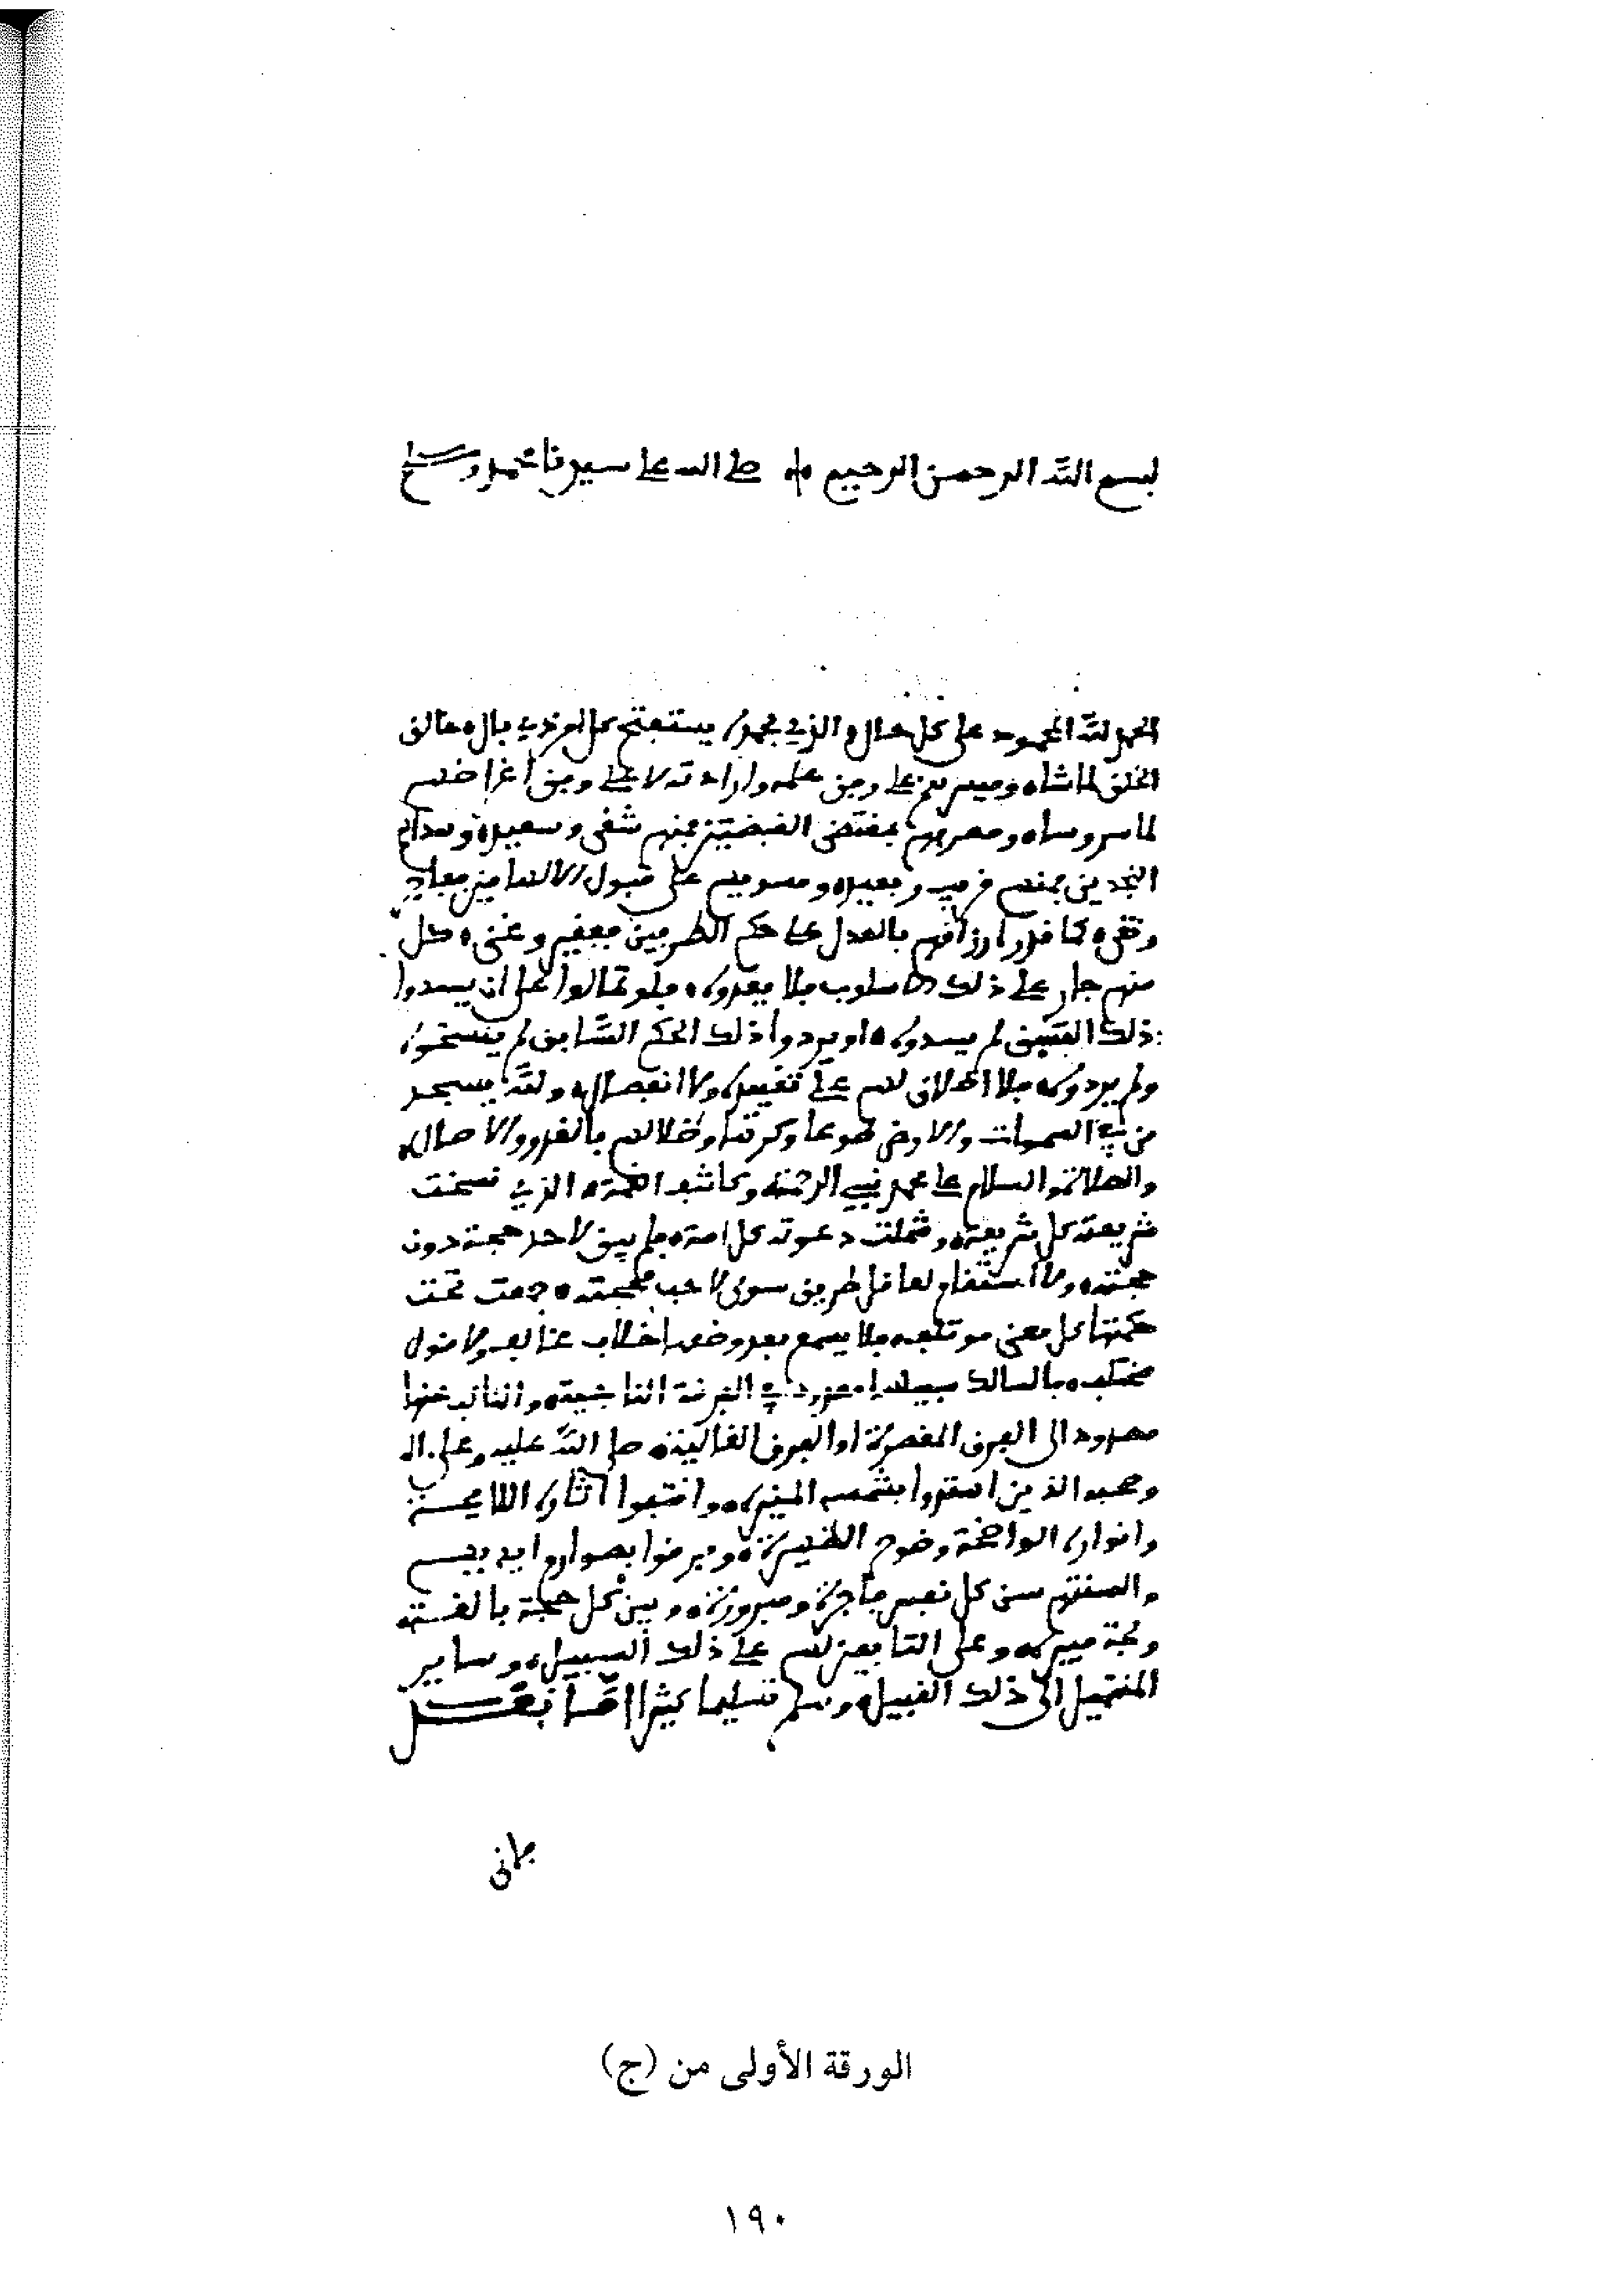 بسم الله الرحمن الرحيم صلى الله على سيدنا محمد وسلم
الحمد لله المحمود على كل حال الذي بحمده يستفتح كل امر ذي بال خالق
الخلق لما شاء وميسرهم على وفق علمه وارادته لا على وفق اغراضهم
لما سر وساء ومصرفهم بمقتضى القبضتين فمنهم شقي وسعيد وهداهم
النجدين فمنهم قريب وبعيد ومسويهم على قبول الالهامين ففاجر
وتقي كما قدر ارزاقهم بالعدل على حكم الطرفين ففقير وغني كل
منهم جار على ذلك الاسلوب فلا يعدوه فلو تمالوا على ان يسدوا
ذلك الفتق لم يسدوه او يردوا ذلك الحكم السابق لم ينسخوه
ولم يردوه فلا اطلاق لهم على تقييده ولا انفصال ولله يسجد
من في السموات والارض طوعا وكرها وظلالهم بالغدو والاصال
والصلاة والسلام على محمد نبي الرحمة وكاشف الغمة الذي نسخت
شريعته كل شريعة وشملت دعوته كل امة فلم يبق لاحد حجة دون
حجته ولا استقام لعاقل طريق سوى لاحب محجته جمعت تحت
حكمتها كل معنى مؤتلف فلا يسمع بعد وضعها خلاف مخالف ولا قول
مختلف فالسالك سبيلها معدود في الفرقة الناجية والناكب عنها
مصدود الى الفرق المقصرة او الفرق الغالية صلى الله عليه وعلى اله
وصحبه الذين اهتدوا بشمسه المنيرة واقتفوا اثاره اللايحة
وانواره الواضحة وضوح الظهيرة وفرقوا بصوارم ايديهم
والسنتهم بين كل نفس فاجرة ومبرورة وبين كل حجة بالغة
وحجة مبيرة وعلى التابعين لهم على ذلك السبيل وساير
المنتمين الى ذلك القبيل وسلم تسليما كثيرا اما بعد
فاني
الورقة الأولى من (ج)
١٩٠